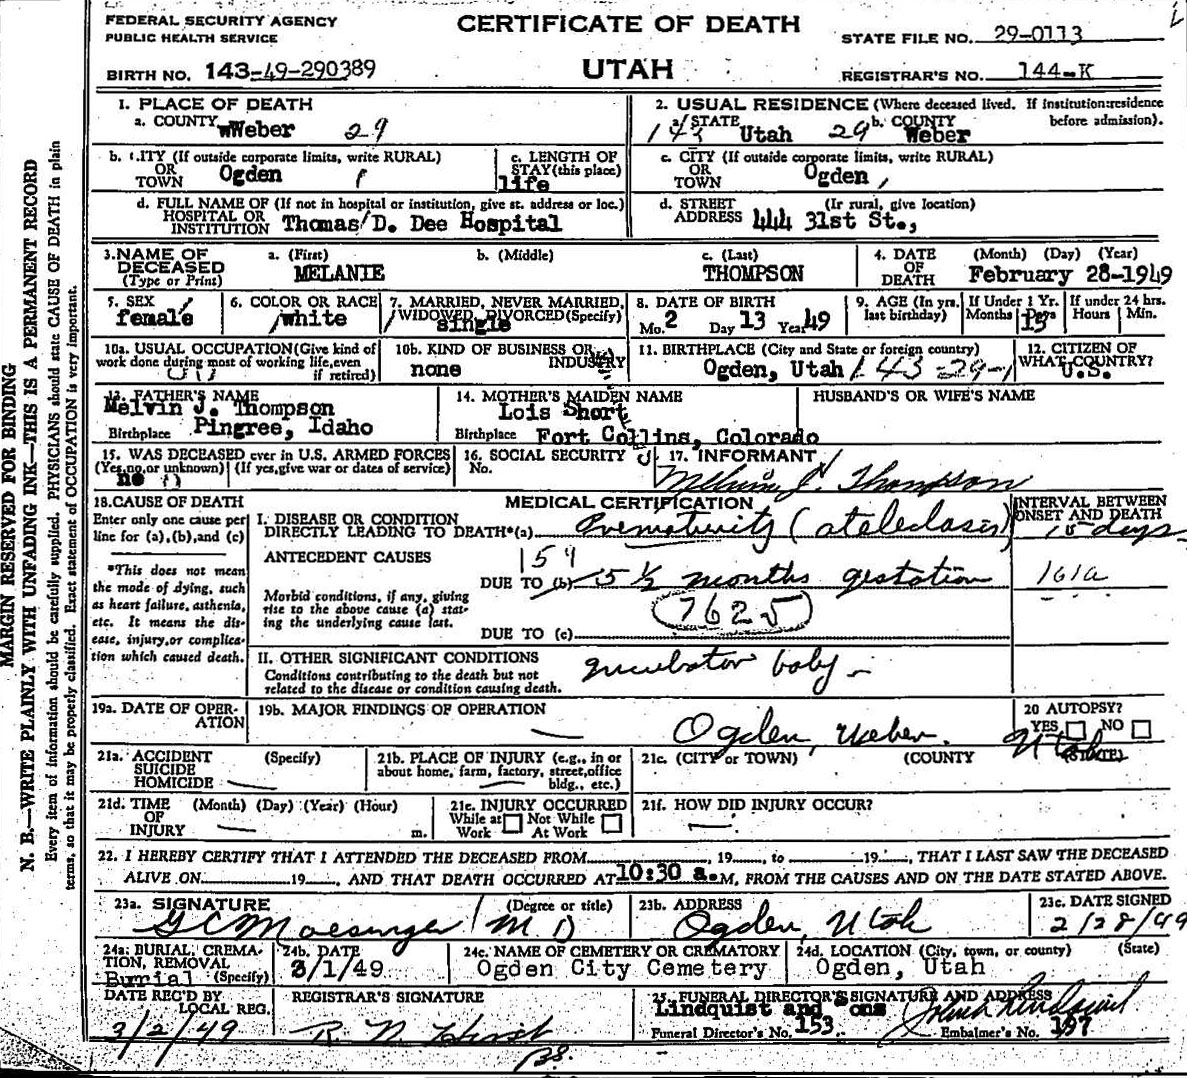 FEDERAL SECURITY AGENCY
PUBLIC HEALTH SERVICE
CERTIFICATE OF DEATH
STATE FILE NO. 29-0113
BIRTH NO. 143-49-290389
UTAH
REGISTRAR'S NO. 144-K
MARGIN RESERVED FOR BINDING
N. B.—WRITE PLAINLY WITH UNFADING INK—THIS IS A PERMANENT RECORD
Every item of information should be carefully supplied. PHYSICIANS should state CAUSE OF DEATH in plain
terms, so that it may be properly classified. Exact statement of OCCUPATION is very important.
1. PLACE OF DEATH
a. COUNTY wWeber 29
2. USUAL RESIDENCE (Where deceased lived. If institution:residence
before admission).
a. STATE 143 Utah 29 b. COUNTY Weber
b. CITY (If outside corporate limits, write RURAL)
OR
TOWN Ogden
c. LENGTH OF
STAY (this place)
life
c. CITY (If outside corporate limits, write RURAL)
OR
TOWN Ogden,
d. FULL NAME OF (If not in hospital or institution, give st. address or loc.)
HOSPITAL OR
INSTITUTION Thomas D. Dee Hospital
d. STREET (If rural, give location)
ADDRESS 444 31st St.,
3. NAME OF
DECEASED
(Type or Print)
a. (First) MELANIE
b. (Middle)
c. (Last) THOMPSON
4. DATE
OF
DEATH
(Month) (Day) (Year)
February 28-1949
5. SEX
female
6. COLOR OR RACE
white
7. MARRIED, NEVER MARRIED,
WIDOWED, DIVORCED (Specify)
single
8. DATE OF BIRTH
Mo. 2 Day 13 Year 49
9. AGE (In yrs.
last birthday)
If Under 1 Yr.
Months Days
15
If under 24 hrs.
Hours Min.
10a. USUAL OCCUPATION (Give kind of
work done during most of working life, even
if retired)
10b. KIND OF BUSINESS OR
INDUSTRY
none
11. BIRTHPLACE (City and State or foreign country)
Ogden, Utah 143-29-1
12. CITIZEN OF
WHAT COUNTRY?
U.S.
13. FATHER'S NAME
Melvin J. Thompson
Birthplace Pingree, Idaho
14. MOTHER'S MAIDEN NAME
Lois Short
Birthplace Fort Collins, Colorado
HUSBAND'S OR WIFE'S NAME
15. WAS DECEASED ever in U.S. ARMED FORCES
(Yes, no, or unknown) (If yes, give war or dates of service)
no
16. SOCIAL SECURITY
No.
17. INFORMANT
Melvin J. Thompson
18. CAUSE OF DEATH
Enter only one cause per
line for (a), (b), and (c)
*This does not mean
the mode of dying, such
as heart failure, asthenia,
etc. It means the dis-
ease, injury, or complica-
tion which caused death.
MEDICAL CERTIFICATION
INTERVAL BETWEEN
ONSET AND DEATH
I. DISEASE OR CONDITION
DIRECTLY LEADING TO DEATH*(a) Prematurity (atelectasis) 15 days
ANTECEDENT CAUSES 159
DUE TO (b) 5½ months gestation 161a
Morbid conditions, if any, giving
rise to the above cause (a) stat-
ing the underlying cause last.
7625
DUE TO (c)
II. OTHER SIGNIFICANT CONDITIONS
Conditions contributing to the death but not
related to the disease or condition causing death.
Incubator baby —
19a. DATE OF OPER-
ATION
19b. MAJOR FINDINGS OF OPERATION
—
20 AUTOPSY?
YES NO
Ogden, Weber. Utah
21a. ACCIDENT (Specify)
SUICIDE
HOMICIDE —
21b. PLACE OF INJURY (e.g., in or
about home, farm, factory, street, office
bldg., etc.) —
21c. (CITY or TOWN) (COUNTY (STATE)
21d. TIME (Month) (Day) (Year) (Hour)
OF
INJURY — m.
21e. INJURY OCCURRED
While at Not While
Work At Work
21f. HOW DID INJURY OCCUR?
—
22. I HEREBY CERTIFY THAT I ATTENDED THE DECEASED FROM , 19 , to 19 , THAT I LAST SAW THE DECEASED
ALIVE ON 19 , AND THAT DEATH OCCURRED AT 10:30 a.M, FROM THE CAUSES AND ON THE DATE STATED ABOVE.
23a. SIGNATURE (Degree or title)
G C Moesinger M.D
23b. ADDRESS
Ogden, Utah
23c. DATE SIGNED
2/28/49
24a. BURIAL, CREMA-
TION, REMOVAL
Burial (Specify)
24b. DATE
3/1/49
24c. NAME OF CEMETERY OR CREMATORY
Ogden City Cemetery
24d. LOCATION (City, town, or county) (State)
Ogden, Utah
DATE REC'D BY
LOCAL REG.
3/2/49
REGISTRAR'S SIGNATURE
R. N. Hirst
25. FUNERAL DIRECTOR'S SIGNATURE AND ADDRESS
Lindquist and Sons
Funeral Director's No. 153
Embalmer's No. 197